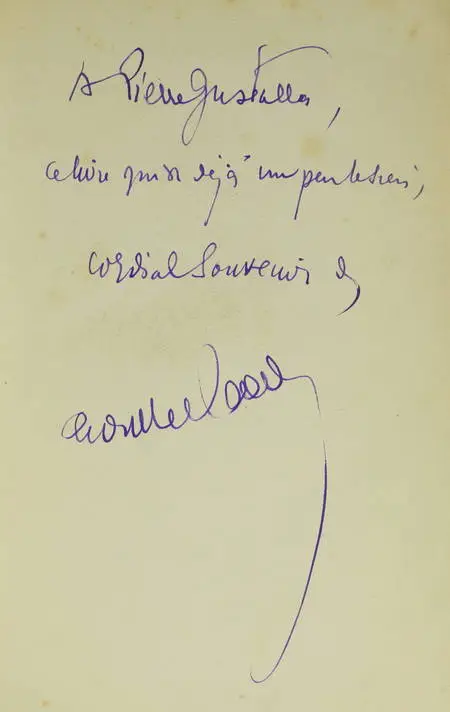 A Pierre Guastalla,
ce livre qui est déjà un peu le sien,
cordial souvenir de